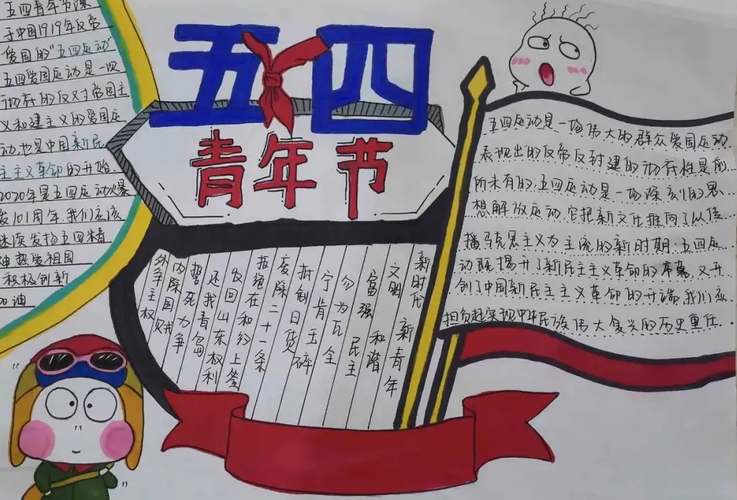 五四
青年节
五四青年节源
于中国1919年反帝
爱国的"五四运动"
五四爱国运动是一次
彻底的反对帝国主
义和封建主义的爱国运
动也是中国新民
主主义革命的开始
2020年是五四运动爆
发101周年我们应该
继续发扬五四精
神热爱祖国
积极创新
加油
新时代 新青年
文明 和谐
富强 民主
勿为瓦全
宁肯玉碎
抵制日货
废除二十一条
拒绝在和约上签
收回山东权利
还我青岛
誓死力争
内除国贼
外争主权
五四运动是一场伟大的群众爱国运动
表现出的反帝反封建的彻底性是前
所未有的五四运动是一场深刻的思
想解放运动.它把新文化推向了以传
播马克思主义为主流的新时期.五四运
动既揭开了新民主主义革命的序幕,又开
创了中国新民主主义革命的开端我们应
担负起实现中华民族伟大复兴的历史重任.